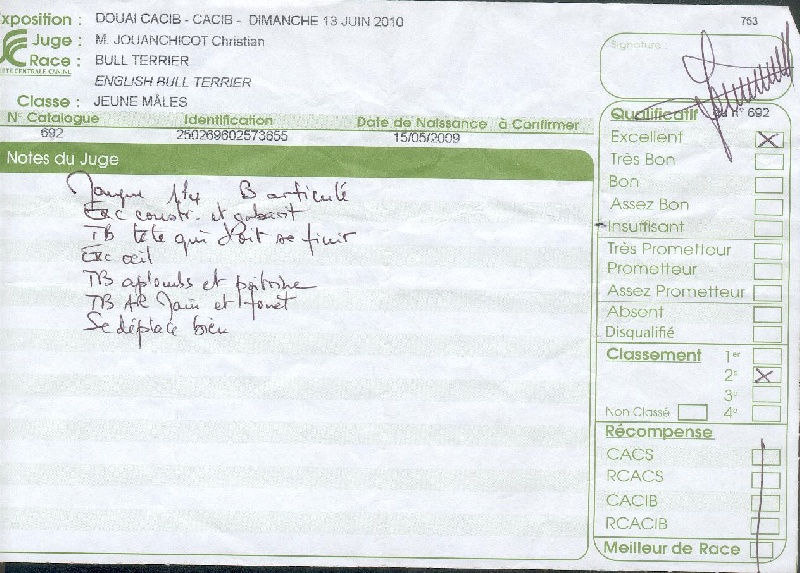 xposition : DOUAI CACIB - CACIB - DIMANCHE 13 JUIN 2010
753
Juge : M. JOUANCHICOT Christian
Race : BULL TERRIER
CENTRALE CANINE
ENGLISH BULL TERRIER
Classe : JEUNE MÂLES
N° Catalogue Identification Date de Naissance à Confirmer
692 250269602573655 15/05/2009
Notes du Juge
Manque B articulé
Exc constr. et gabarit
TB tête qui doit se finir
Exc œil
TB aplombs et poitrine
TB AR main et fouet
Se déplace bien
Signature
Qualificatif du n° 692
Excellent X
Très Bon
Bon
Assez Bon
Insuffisant
Très Prometteur
Prometteur
Assez Prometteur
Absent
Disqualifié
Classement 1er
2e X
3e
Non Classé 4e
Récompense
CACS
RCACS
CACIB
RCACIB
Meilleur de Race